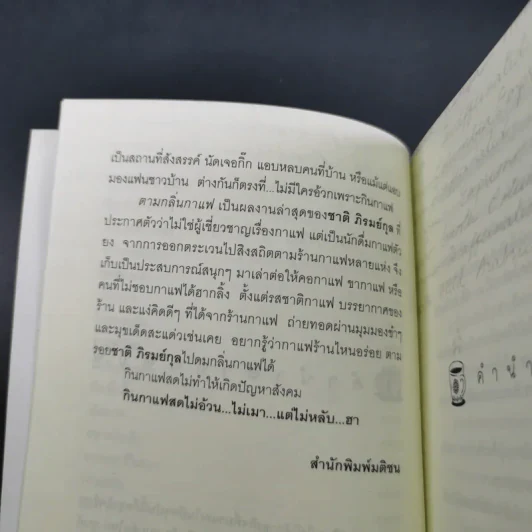 เป็นสถานที่สังสรรค์ นัดเจอกิ๊ก แอบหลบคนที่บ้าน หรือแม้แต่แอบ
มองแฟนชาวบ้าน ต่างกันก็ตรงที่...ไม่มีใครอ้วกเพราะกินกาแฟ
ตามกลิ่นกาแฟ เป็นผลงานล่าสุดของชาติ ภิรมย์กุล ที่
ประกาศตัวว่าไม่ใช่ผู้เชี่ยวชาญเรื่องกาแฟ แต่เป็นนักดื่มกาแฟตัว
ยง จากการออกตระเวนไปสิงสถิตตามร้านกาแฟหลายแห่ง จึง
เก็บเป็นประสบการณ์สนุกๆ มาเล่าต่อให้คอกาแฟ ขากาแฟ หรือ
คนที่ไม่ชอบกาแฟได้ฮากลิ้ง ตั้งแต่รสชาติกาแฟ บรรยากาศของ
ร้าน และแง่คิดดีๆ ที่ได้จากร้านกาแฟ ถ่ายทอดผ่านมุมมองขำๆ
และมุขเด็ดสะแด่วเช่นเคย อยากรู้ว่ากาแฟร้านไหนอร่อย ตาม
รอยชาติ ภิรมย์กุลไปดมกลิ่นกาแฟได้
กินกาแฟสดไม่ทำให้เกิดปัญหาสังคม
กินกาแฟสดไม่อ้วน...ไม่เมา...แต่ไม่หลับ...ฮา
สำนักพิมพ์มติชน
คำนำ